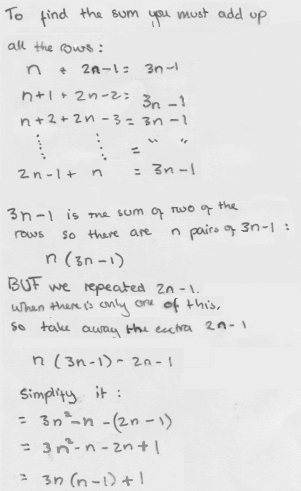 To find the sum you must add up
all the rows:
n + 2n-1 = 3n-1
n+1 + 2n-2 = 3n-1
n+2+2n-3 = 3n-1
⋮ ⋮ = " "
2n-1+ n = 3n-1
3n-1 is the sum of two of the
rows so there are n pairs of 3n-1:
n(3n-1)
BUT we repeated 2n-1.
when there is only one of this,
so take away the extra 2n-1
n(3n-1)-2n-1
Simplify it:
= 3n²-n-(2n-1)
= 3n²-n-2n+1
= 3n(n-1)+1